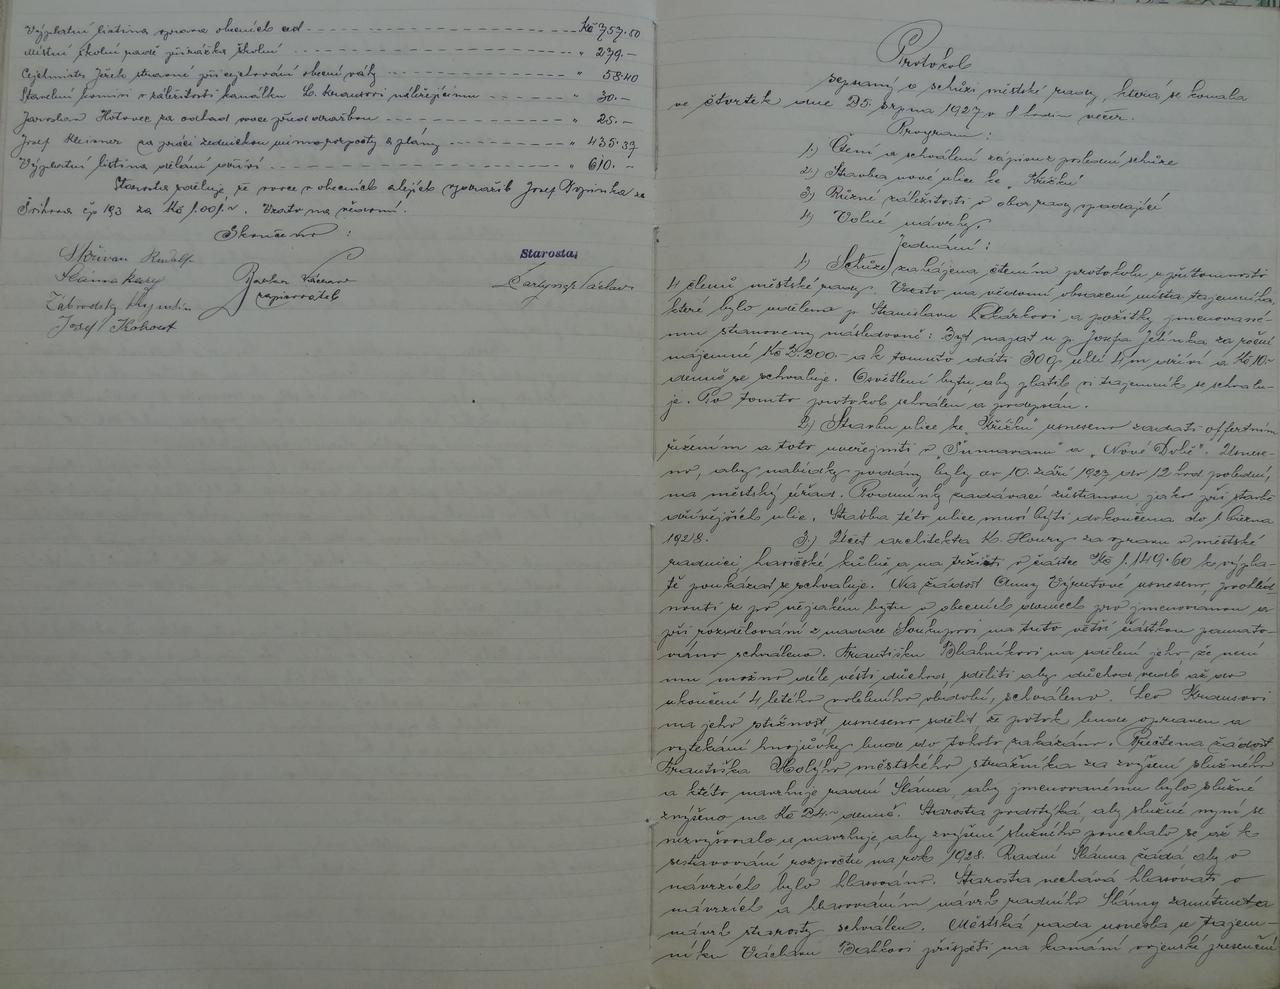 Výplatní listina správa obecních cest Kč 757.50
Místní školní radě přirážka školní " 279.-
Cejchmistr Jéžek stravné při cejchování obecní váhy " 58.40
Stavební komisi v záležitosti kanálku L. Krausovi náležejícímu " 30.-
Jaroslav Hotovec za odhad ovoce před dražbou " 25.-
Josef Kleisner za práci zednickou mimo rozpočty a plány " 435.37
Výplatní listina dělání dříví " 610.-
Starosta sděluje, že ovoce v obecních alejích vydražil Josef ze
Švihova čp 193 za Kč 1.001.-. Vzato na vědomí.
Skončeno:
Skřivan Rudolf
Starosta,
Sláma
Václav
zapisovatel
Václav
Zábrodský
Josef Kohout
Protokol
sepsaný o schůzi městské rady, která se konala
ve čtvrtek dne 25. srpna 1927 v 8 hodin večer.
Program:
1) Čtení a schválení zápisu z poslední schůze
2) Stavba nové ulice ke "Křížku"
3) Různé záležitosti v obor rady spadající
4) Volné návrhy.
Jednání:
1) Schůze zahájena čtením protokolu v přítomnosti
4 členů městské rady. Vzato na vědomí obsazení místa tajemníka,
které bylo uděleno p. Stanislavu Lekárkovi a požitky jmenované-
mu stanoveny následovně: Byt najat u p. Josefa Jelínka za roční
nájemné Kč 2.200.- a k tomuto dáti 30 q uhlí 4 m dříví a Kč 10.-
denně se schvaluje. Osvětlení bytu, aby platil si tajemník se schvalu-
je. Po tomto protokol schválen a podepsán.
2) Stavbu ulice ke "Křížku" usneseno zadati offertním
řízením a toto uveřejniti v "Šumavanu" a "Nové Době". Usnese-
no, aby nabídky podány byly do 10. září 1927 do 12 hod polední,
na městský úřad. Podmínky zadávací zůstanou jako při stavbě
dřívějších ulic. Stavba této ulice musí býti dokončena do 1. března
1928. 3.) Účet architekta K. Houry za opravu v městské
radnici, hasičské kůlně a na tržišti v částce Kč 1.149.60 k výpla-
tě poukázat se schvaluje. Na žádost Anny Výrutové usneseno, poohléd-
nouti se po nějakém bytu v obecních domech pro jmenovanou a
při rozdělování z nadace Soukupovi na tuto větší částkou pamato-
váno schváleno. Františku Blahníkovi na sdělení jeho, že není
mu možno déle vésti důchod, sděliti aby důchod vedl až do
ukončení 4 letého volebního období, schváleno. Leo Krausovi
na jeho stížnost, usneseno sdělit že potok bude opraven a
vytékání hnojůvky bude do tohoto zakázáno. Přečtena žádost
Františka Holýho městského strážníka za zvýšení služného
a k této navrhuje radní Sláma, aby jmenovanému bylo služné
zvýšeno na Kč 24.- denně. Starosta podotýká, aby služné nyní se
nezvyšovalo a navrhuje, aby zvýšení služného ponechalo se až k
sestavování rozpočtu na rok 1928. Radní Sláma žádá aby o
návrzích bylo hlasováno. Starosta nechává hlasovati o
návrzích a hlasováním návrh radního Slámy zamítnut a
návrh starosty schválen. Městská rada usnesla se tajem-
níku Václavu Brabcovi přispěti na konání vojenské presenční